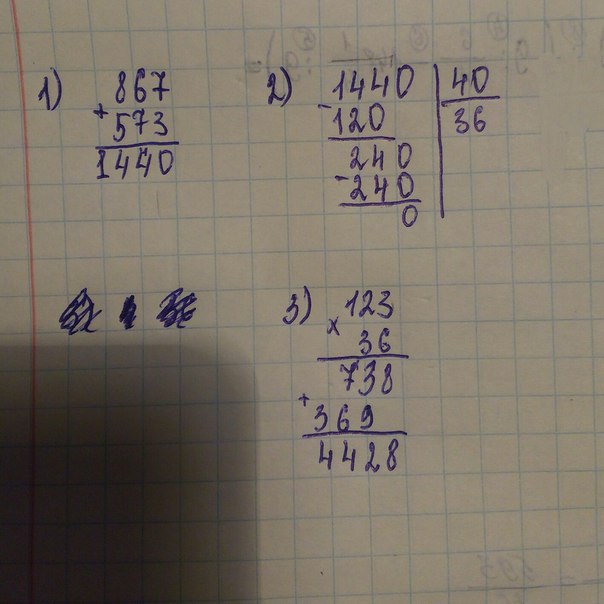 1) 867
+ 573
1440
2) 1440 | 40
- 120 | 36
240
- 240
0
3) 123
x 36
738
+ 369
4428